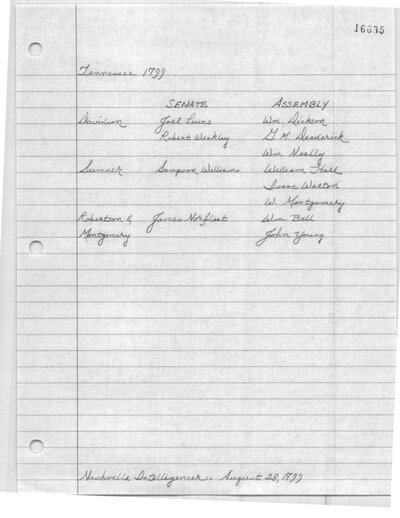 16635
Tennessee 1799
SENATE ASSEMBLY
Davidson Joel Lewis Wm. Dickson
Robert Weakley G. M. Deaderick
Wm Neally
Sumner Sampson Williams William Hall
Isaac Walton
W. Montgomery
Robertson & James Norfleet Wm. Bell
Montgomery John Young
Nashville Intelligencer. August 28, 1799